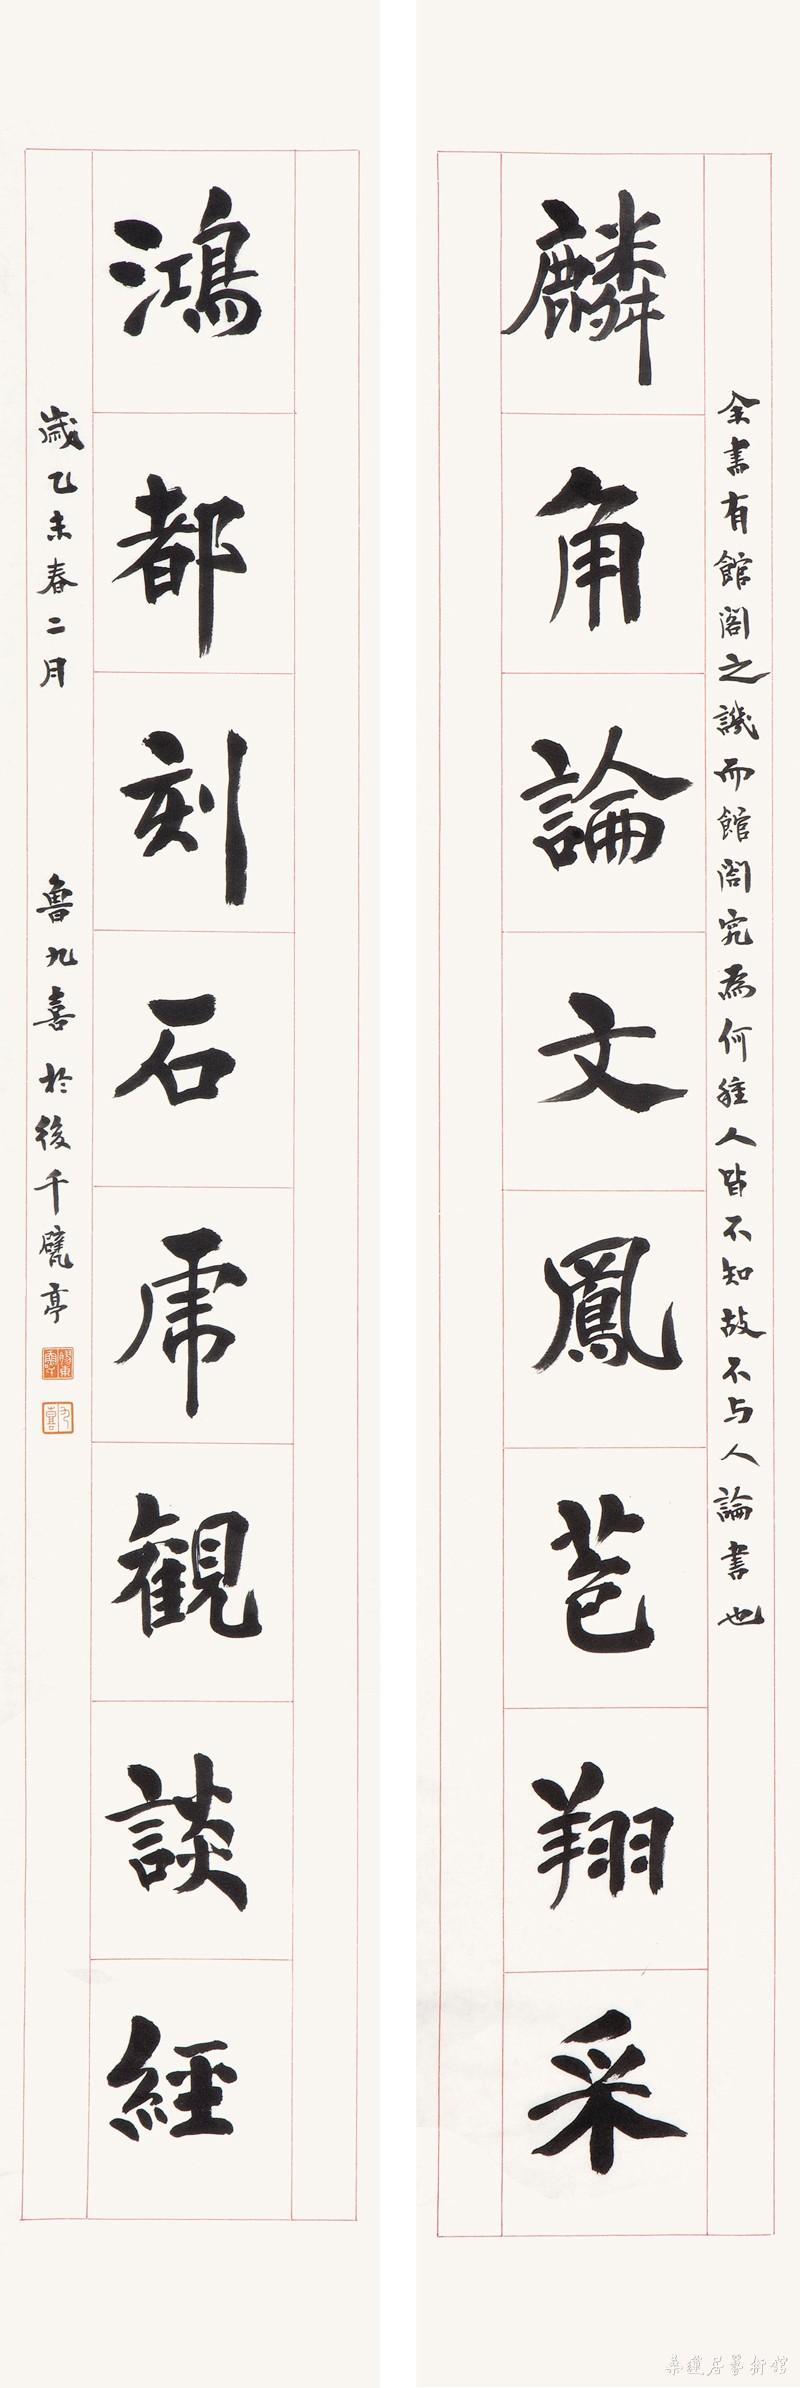 余書有館閣之譏而館閣究為何種人皆不知故不与人論書也
麟角論文鳳苞翔采
鴻都刻石虎觀談經
歲乙未春二月 魯九喜於後千甓亭
九喜
桑蓮居藝術館